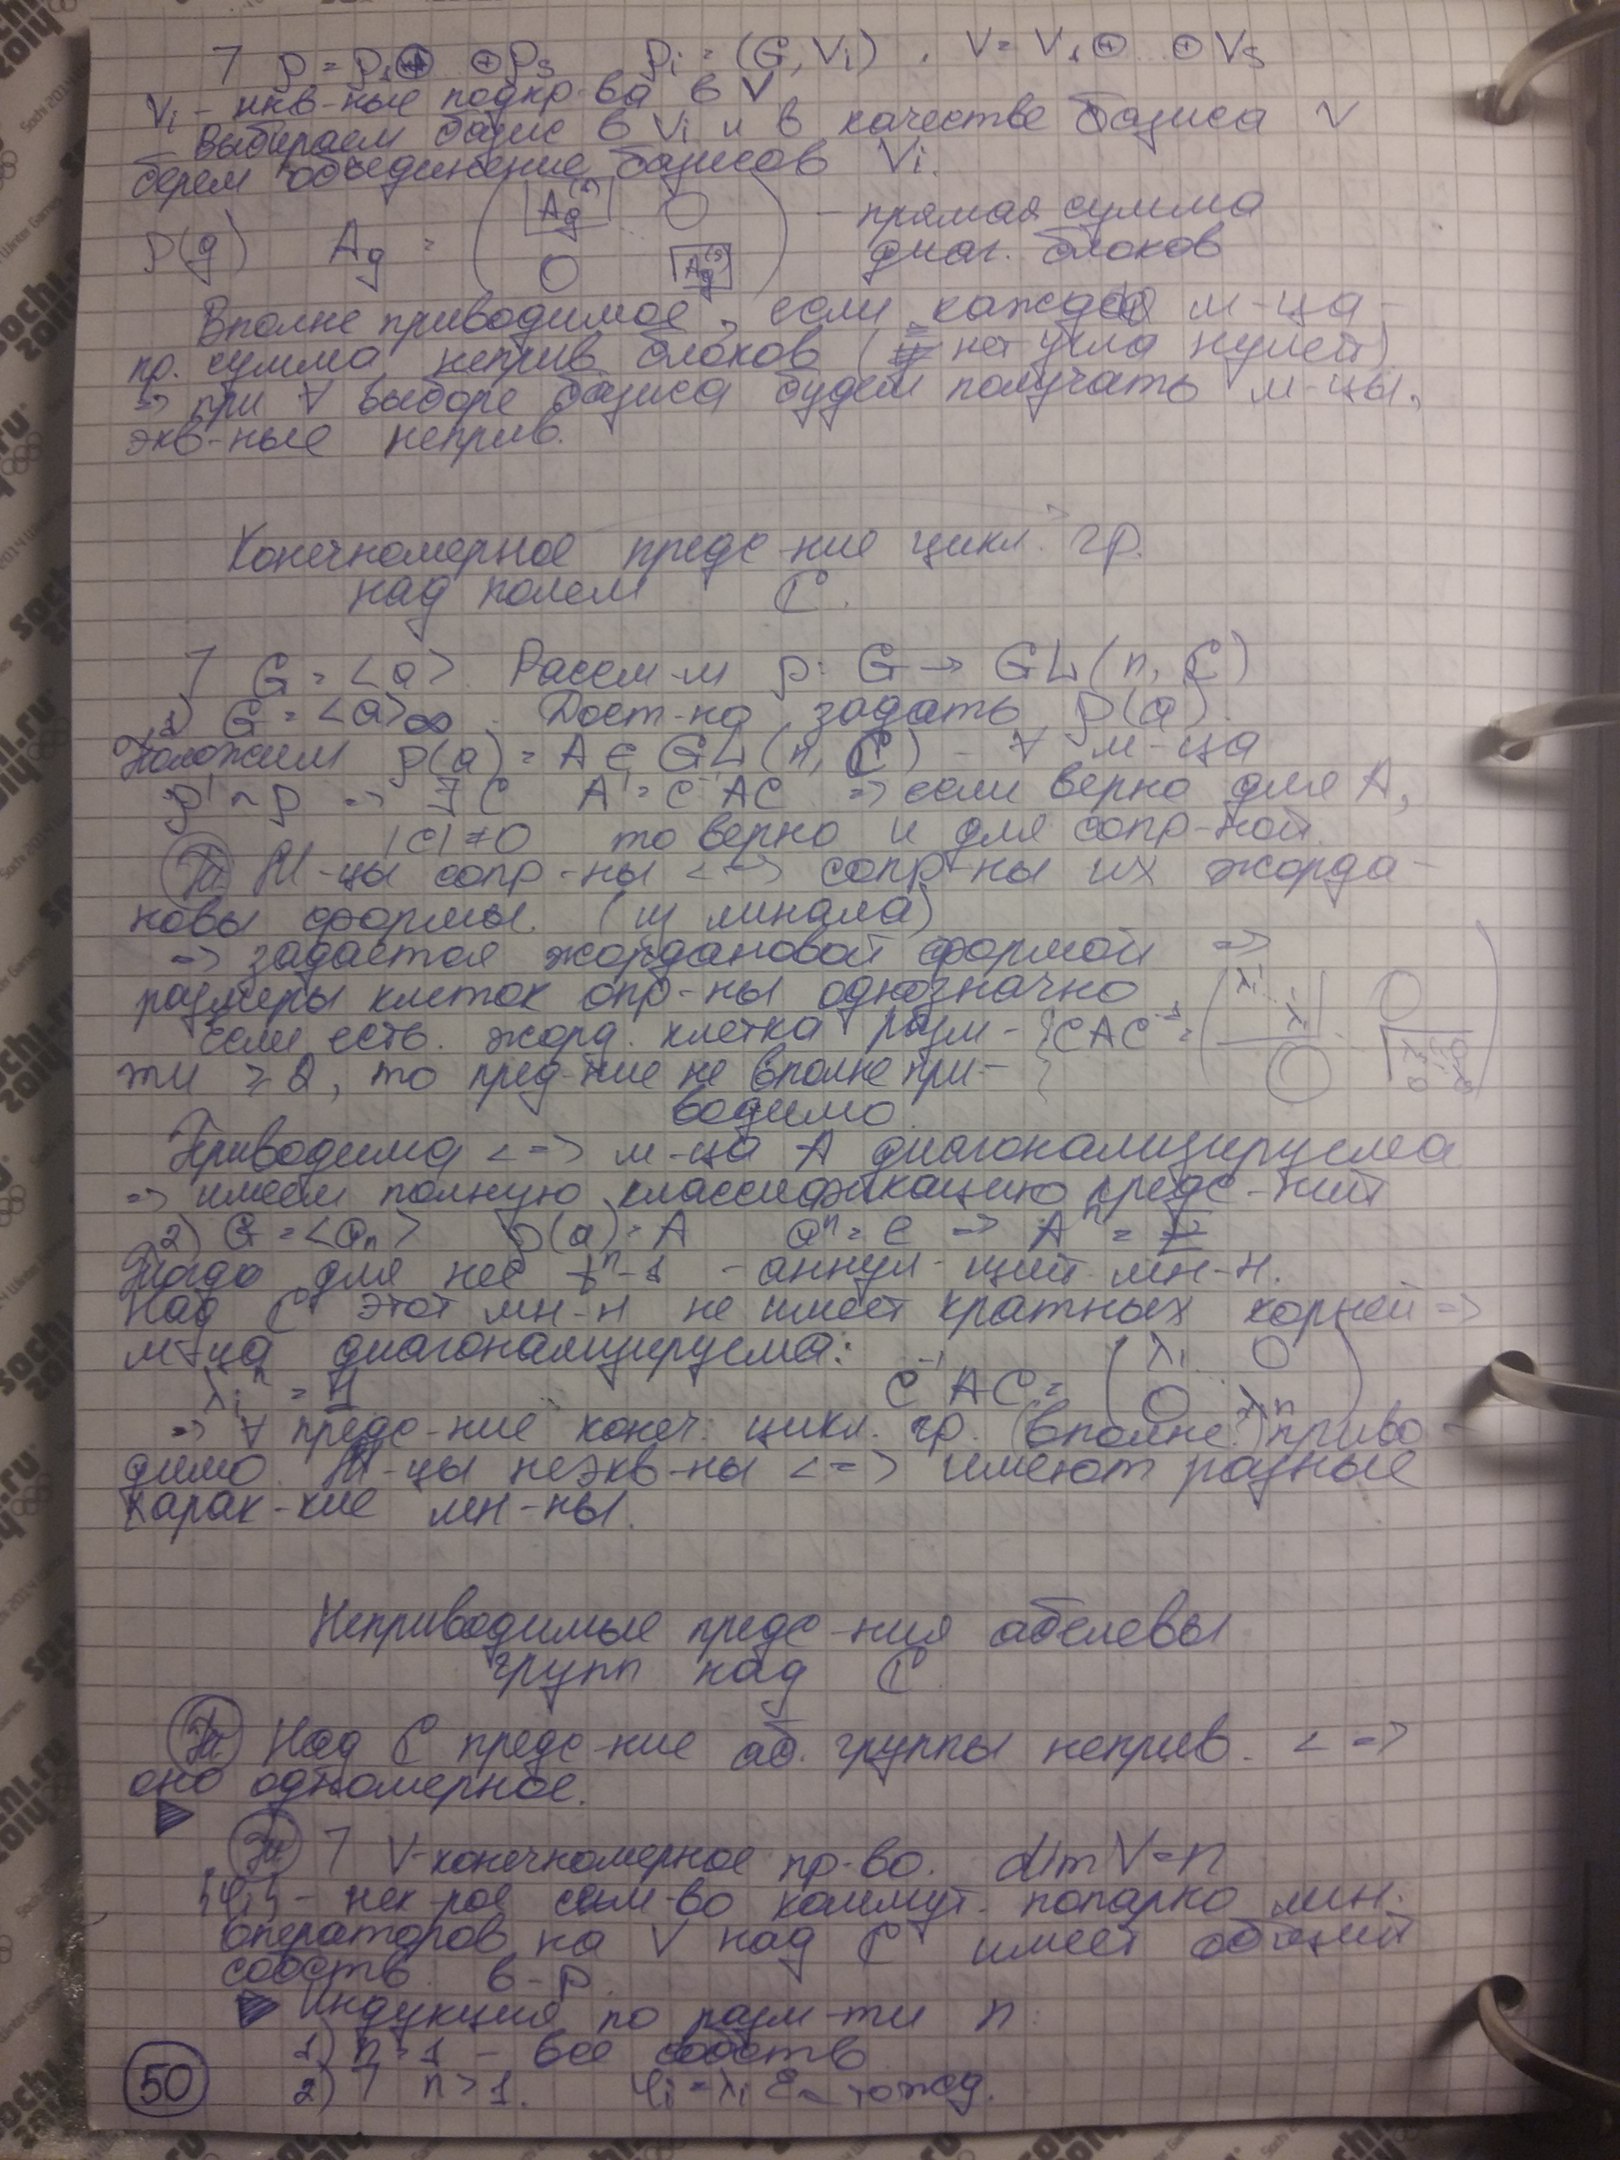 ˥ ρ = ρ₁ ⊕ ⊕ ρₛ ρᵢ = (G, Vᵢ) . V = V₁ ⊕ ... ⊕ Vₛ
Vᵢ - инв-ные подпр-ва в V
Выбираем базис в Vᵢ и в качестве базиса V
берем объединение базисов Vᵢ.
ρ(g) A_g = ( A_g⁽¹⁾ 0 ) - прямая сумма
0 A_g⁽ˢ⁾ диаг. блоков
Вполне приводимое, если каждая м-ца -
пр. сумма неприв. блоков ( нет угла нулей)
=> при ∀ выборе базиса будем получать м-цы,
экв-ные неприв.
Конечномерное предс-ние цикл. гр.
над полем ℂ.
˥ G = <a>. Рассм-м ρ: G → GL(n, ℂ)
1) G = <a>∞. Дост-но задать ρ(a).
Положим ρ(a) = A ∈ GL(n, ℂ) - ∀ м-ца
ρ' ~ ρ => ∃ C A' = C⁻¹AC => если верно для A,
|C| ≠ 0 то верно и для сопр-ной.
Т М-цы сопр-ны <=> сопр-ны их жорда-
новы формы. (из линала)
=> задается жордановой формой =>
размеры клеток опр-ны однозначно
Если есть. жорд. клетка разм- CAC⁻¹ = ( λ₁ 0
ти ≥ 2, то пред-ние не вполне при- 0
водимо
Приводима <=> м-ца A диагонализируема
=> имеем полную классификацию предс-ний
2) G = <aₙ> ρ(a) = A aⁿ = e => Aⁿ = E
Тогда для нее tⁿ-1 - аннул-щий мн-н.
Над ℂ этот мн-н не имеет кратных корней =>
м-ца диагонализируема:
λᵢⁿ = 1 C⁻¹AC = ( λ₁ 0 0 λₙ )
=> ∀ предс-ние конеч. цикл. гр. (вполне) приво-
димо. М-цы неэкв-ны <=> имеют разные
харак-кие мн-ны.
Неприводимые предс-ния абелевы
групп над ℂ
Т Над ℂ предс-ние аб. группы неприв. <=>
оно одномерное.
Т ˥ V-конечномерное пр-во. dim V = n
{φᵢ} - нек-рое сем-во коммут. попарно лин.
операторов на V над ℂ имеет общий
собств. в-р.
Индукция по разм-ти n:
1) n = 1 - все собств
2) ˥ n > 1. φᵢ = λᵢ ε - тожд.
50